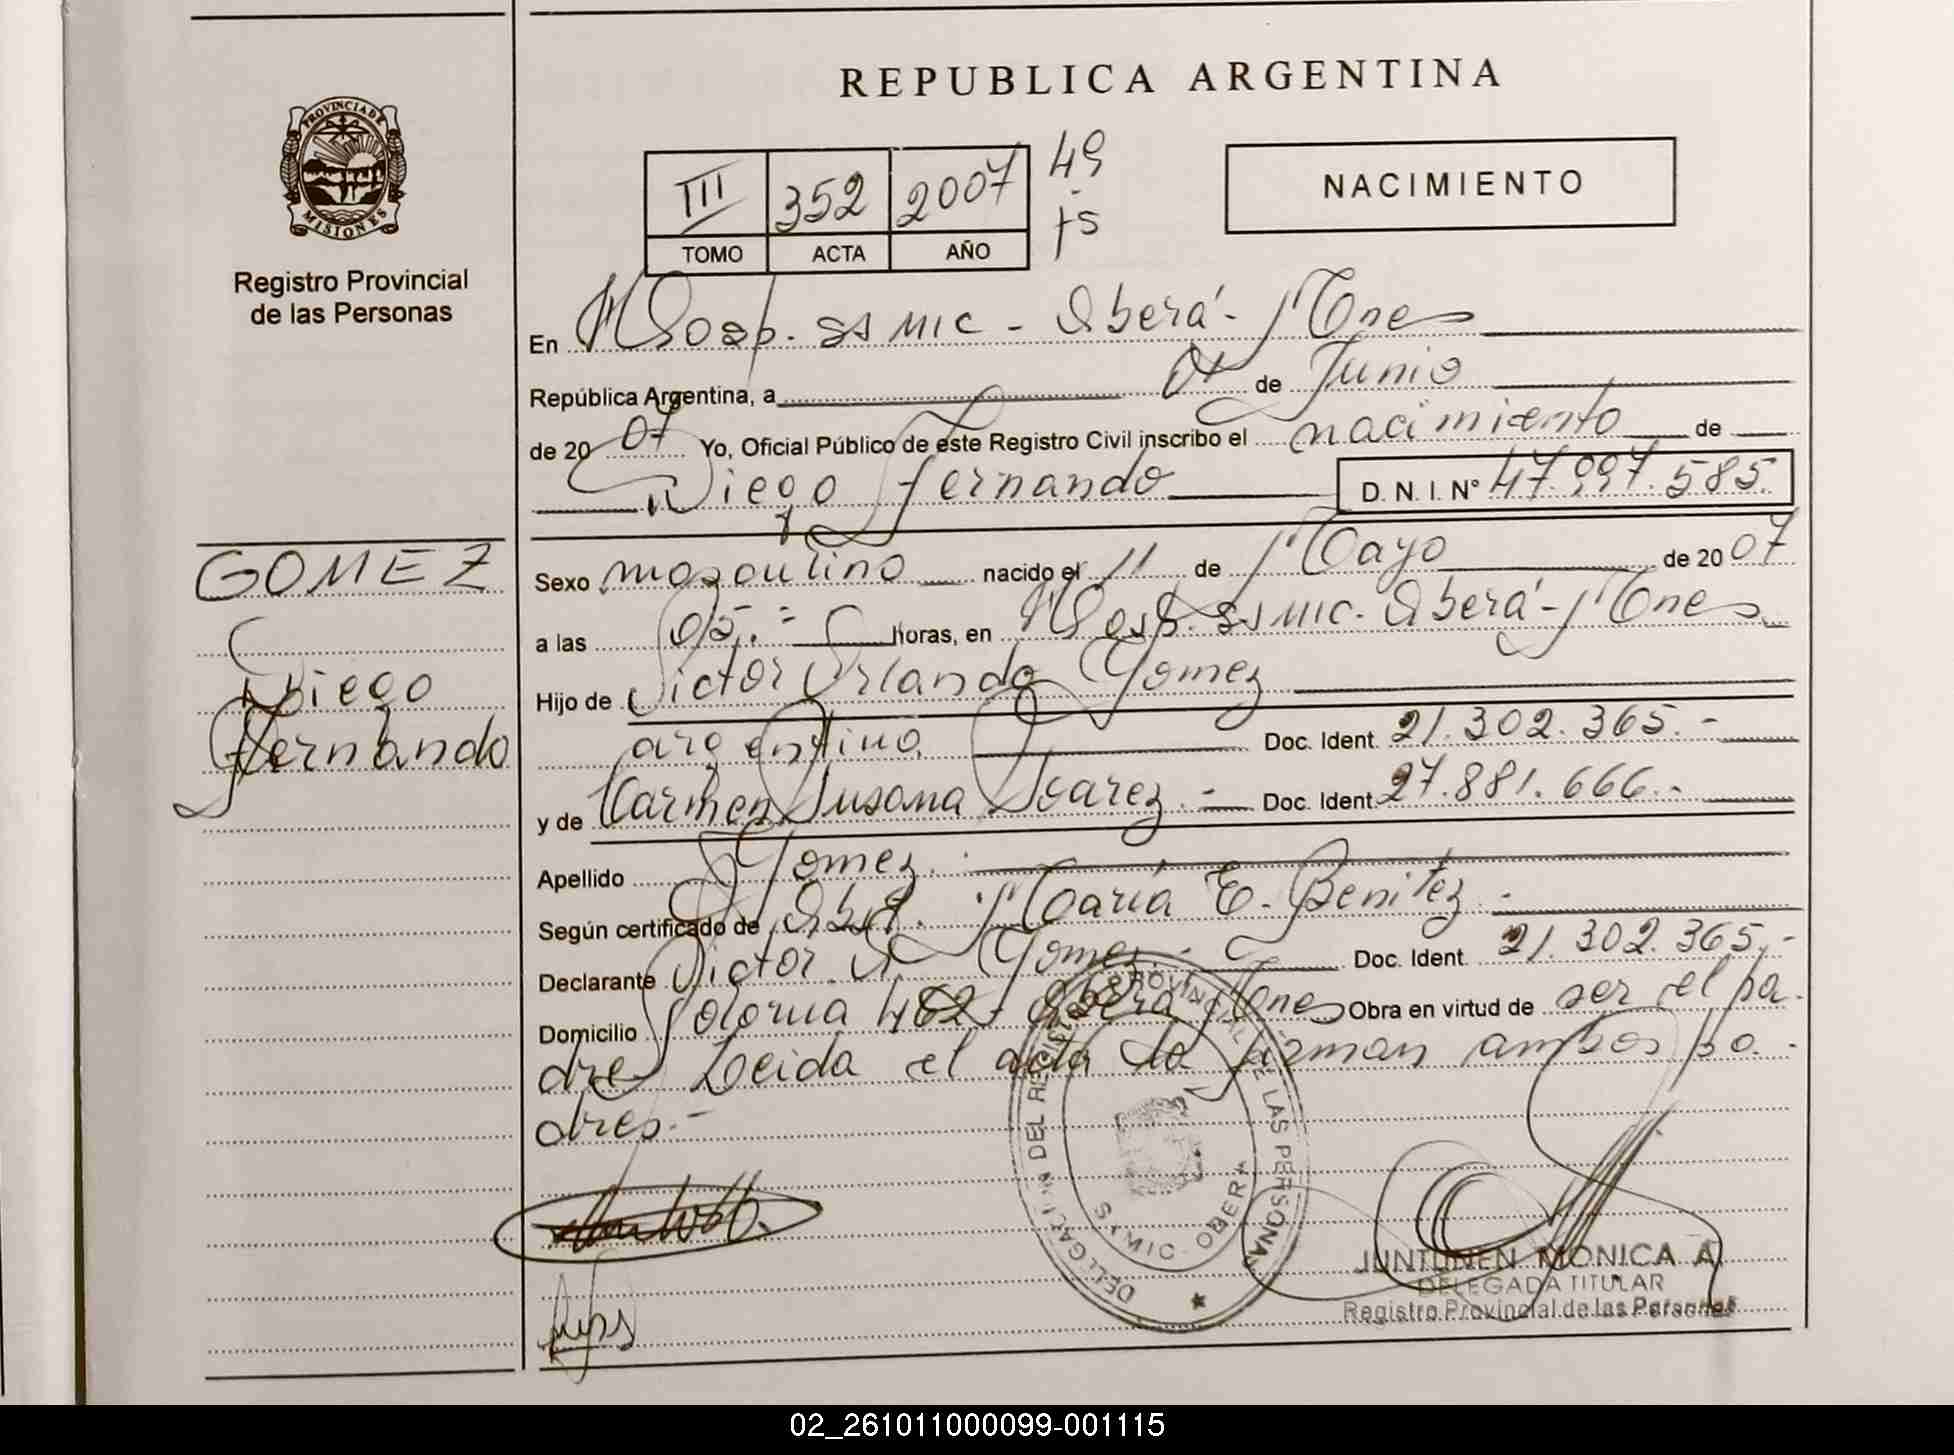 REPUBLICA ARGENTINA
PROVINCIA DE MISIONES
Registro Provincial
de las Personas
III 352 2007 49
TOMO ACTA AÑO
NACIMIENTO
En Hosp. SS MIC - Oberá - Mnes
República Argentina, a 07 de Junio
de 20 07 Yo, Oficial Público de este Registro Civil inscribo el nacimiento de
Diego Fernando D. N. I. Nº 47.997.585.
GOMEZ
Diego
Fernando
Sexo masculino nacido el 11 de Mayo de 20 07
a las 05.= horas, en Hosp. SS MIC. Oberá - Mnes
Hijo de Victor Orlando Gomez
argentino Doc. Ident. 21.302.365.-
y de Carmen Susana Suarez.- Doc. Ident. 27.881.666.-
Apellido Gomez.
Según certificado de Obst. María E. Benitez.
Declarante Victor O. Gomez.- Doc. Ident. 21.302.365.-
Domicilio 462 - Oberá Mnes Obra en virtud de ser el pa-
dre Leida el acta la firman ambos pa-
dres.-
DELEGACION DEL REGISTRO PROVINCIAL DE LAS PERSONAS
SSMIC - OBERA
JUNTUNEN MONICA A
DELEGADA TITULAR
Registro Provincial de las Personas
02_261011000099-001115